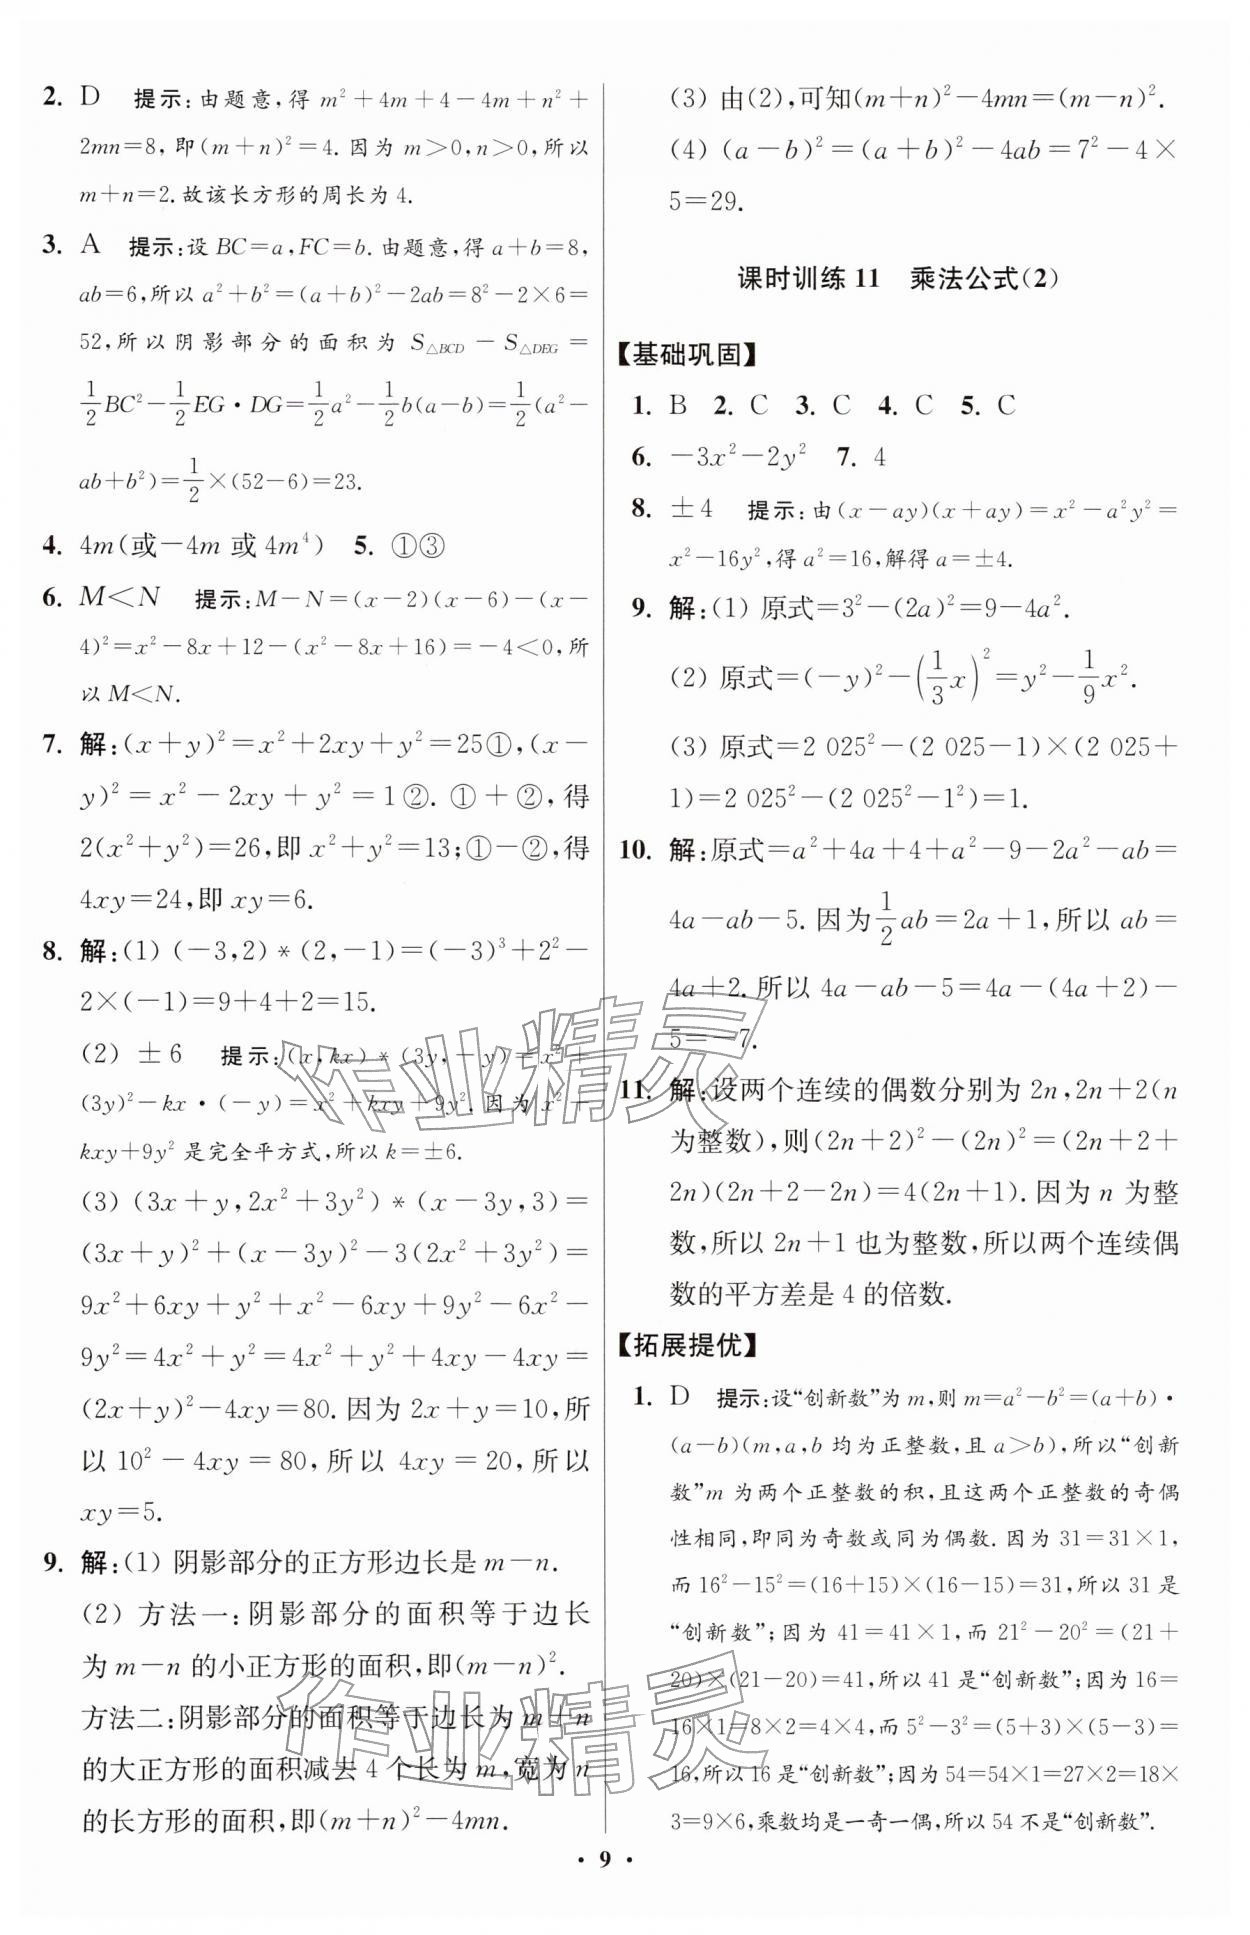 2. D 提示:由题意,得 m²+4m+4-4m+n²+
2mn=8,即(m+n)²=4.因为 m>0,n>0,所以
m+n=2.故该长方形的周长为 4.
3. A 提示:设 BC=a,FC=b.由题意,得 a+b=8,
ab=6,所以 a²+b²=(a+b)²-2ab=8²-2×6=
52,所以阴影部分的面积为 S△BCD-S△DEG=
1/2 BC²-1/2 EG·DG=1/2 a²-1/2 b(a-b)=1/2 (a²-
ab+b²)=1/2×(52-6)=23.
4. 4m(或-4m 或 4m⁴) 5. ①③
6. M<N 提示:M-N=(x-2)(x-6)-(x-
4)²=x²-8x+12-(x²-8x+16)=-4<0,所
以 M<N.
7. 解:(x+y)²=x²+2xy+y²=25①,(x-
y)²=x²-2xy+y²=1②. ①+②,得
2(x²+y²)=26,即 x²+y²=13;①-②,得
4xy=24,即 xy=6.
8. 解:(1) (-3,2)*(2,-1)=(-3)³+2²-
2×(-1)=9+4+2=15.
(2) ±6 提示:(x,kx)*(3y,-y)=x²+
(3y)²-kx·(-y)=x²+kxy+9y².因为 x²+
kxy+9y² 是完全平方式,所以 k=±6.
(3) (3x+y,2x²+3y²)*(x-3y,3)=
(3x+y)²+(x-3y)²-3(2x²+3y²)=
9x²+6xy+y²+x²-6xy+9y²-6x²-
9y²=4x²+y²=4x²+y²+4xy-4xy=
(2x+y)²-4xy=80.因为 2x+y=10,所
以 10²-4xy=80,所以 4xy=20,所以
xy=5.
9. 解:(1) 阴影部分的正方形边长是 m-n.
(2) 方法一:阴影部分的面积等于边长
为 m-n 的小正方形的面积,即(m-n)².
方法二:阴影部分的面积等于边长为 m+n
的大正方形的面积减去 4 个长为 m,宽为 n
的长方形的面积,即(m+n)²-4mn.
(3) 由(2),可知(m+n)²-4mn=(m-n)².
(4) (a-b)²=(a+b)²-4ab=7²-4×
5=29.
课时训练 11 乘法公式(2)
【基础巩固】
1. B 2. C 3. C 4. C 5. C
6. -3x²-2y² 7. 4
8. ±4 提示:由(x-ay)(x+ay)=x²-a²y²=
x²-16y²,得 a²=16,解得 a=±4.
9. 解:(1) 原式=3²-(2a)²=9-4a².
(2) 原式=(-y)²-(1/3 x)²=y²-1/9 x².
(3) 原式=2 025²-(2 025-1)×(2 025+
1)=2 025²-(2 025²-1²)=1.
10. 解:原式=a²+4a+4+a²-9-2a²-ab=
4a-ab-5.因为 1/2 ab=2a+1,所以 ab=
4a+2.所以 4a-ab-5=4a-(4a+2)-
5=-7.
11. 解:设两个连续的偶数分别为 2n,2n+2(n
为整数),则(2n+2)²-(2n)²=(2n+2+
2n)(2n+2-2n)=4(2n+1).因为 n 为整
数,所以 2n+1 也为整数,所以两个连续偶
数的平方差是 4 的倍数.
【拓展提优】
1. D 提示:设“创新数”为 m,则 m=a²-b²=(a+b)·
(a-b)(m,a,b 均为正整数,且 a>b),所以“创新
数”m 为两个正整数的积,且这两个正整数的奇偶
性相同,即同为奇数或同为偶数.因为 31=31×1,
而 16²-15²=(16+15)×(16-15)=31,所以 31 是
“创新数”;因为 41=41×1,而 21²-20²=(21+
20)×(21-20)=41,所以 41 是“创新数”;因为 16=
16×1=8×2=4×4,而 5²-3²=(5+3)×(5-3)=
16,所以 16 是“创新数”;因为 54=54×1=27×2=18×
3=9×6,乘数均是一奇一偶,所以 54 不是“创新数”.
作业精灵
作业精灵
· 9 ·